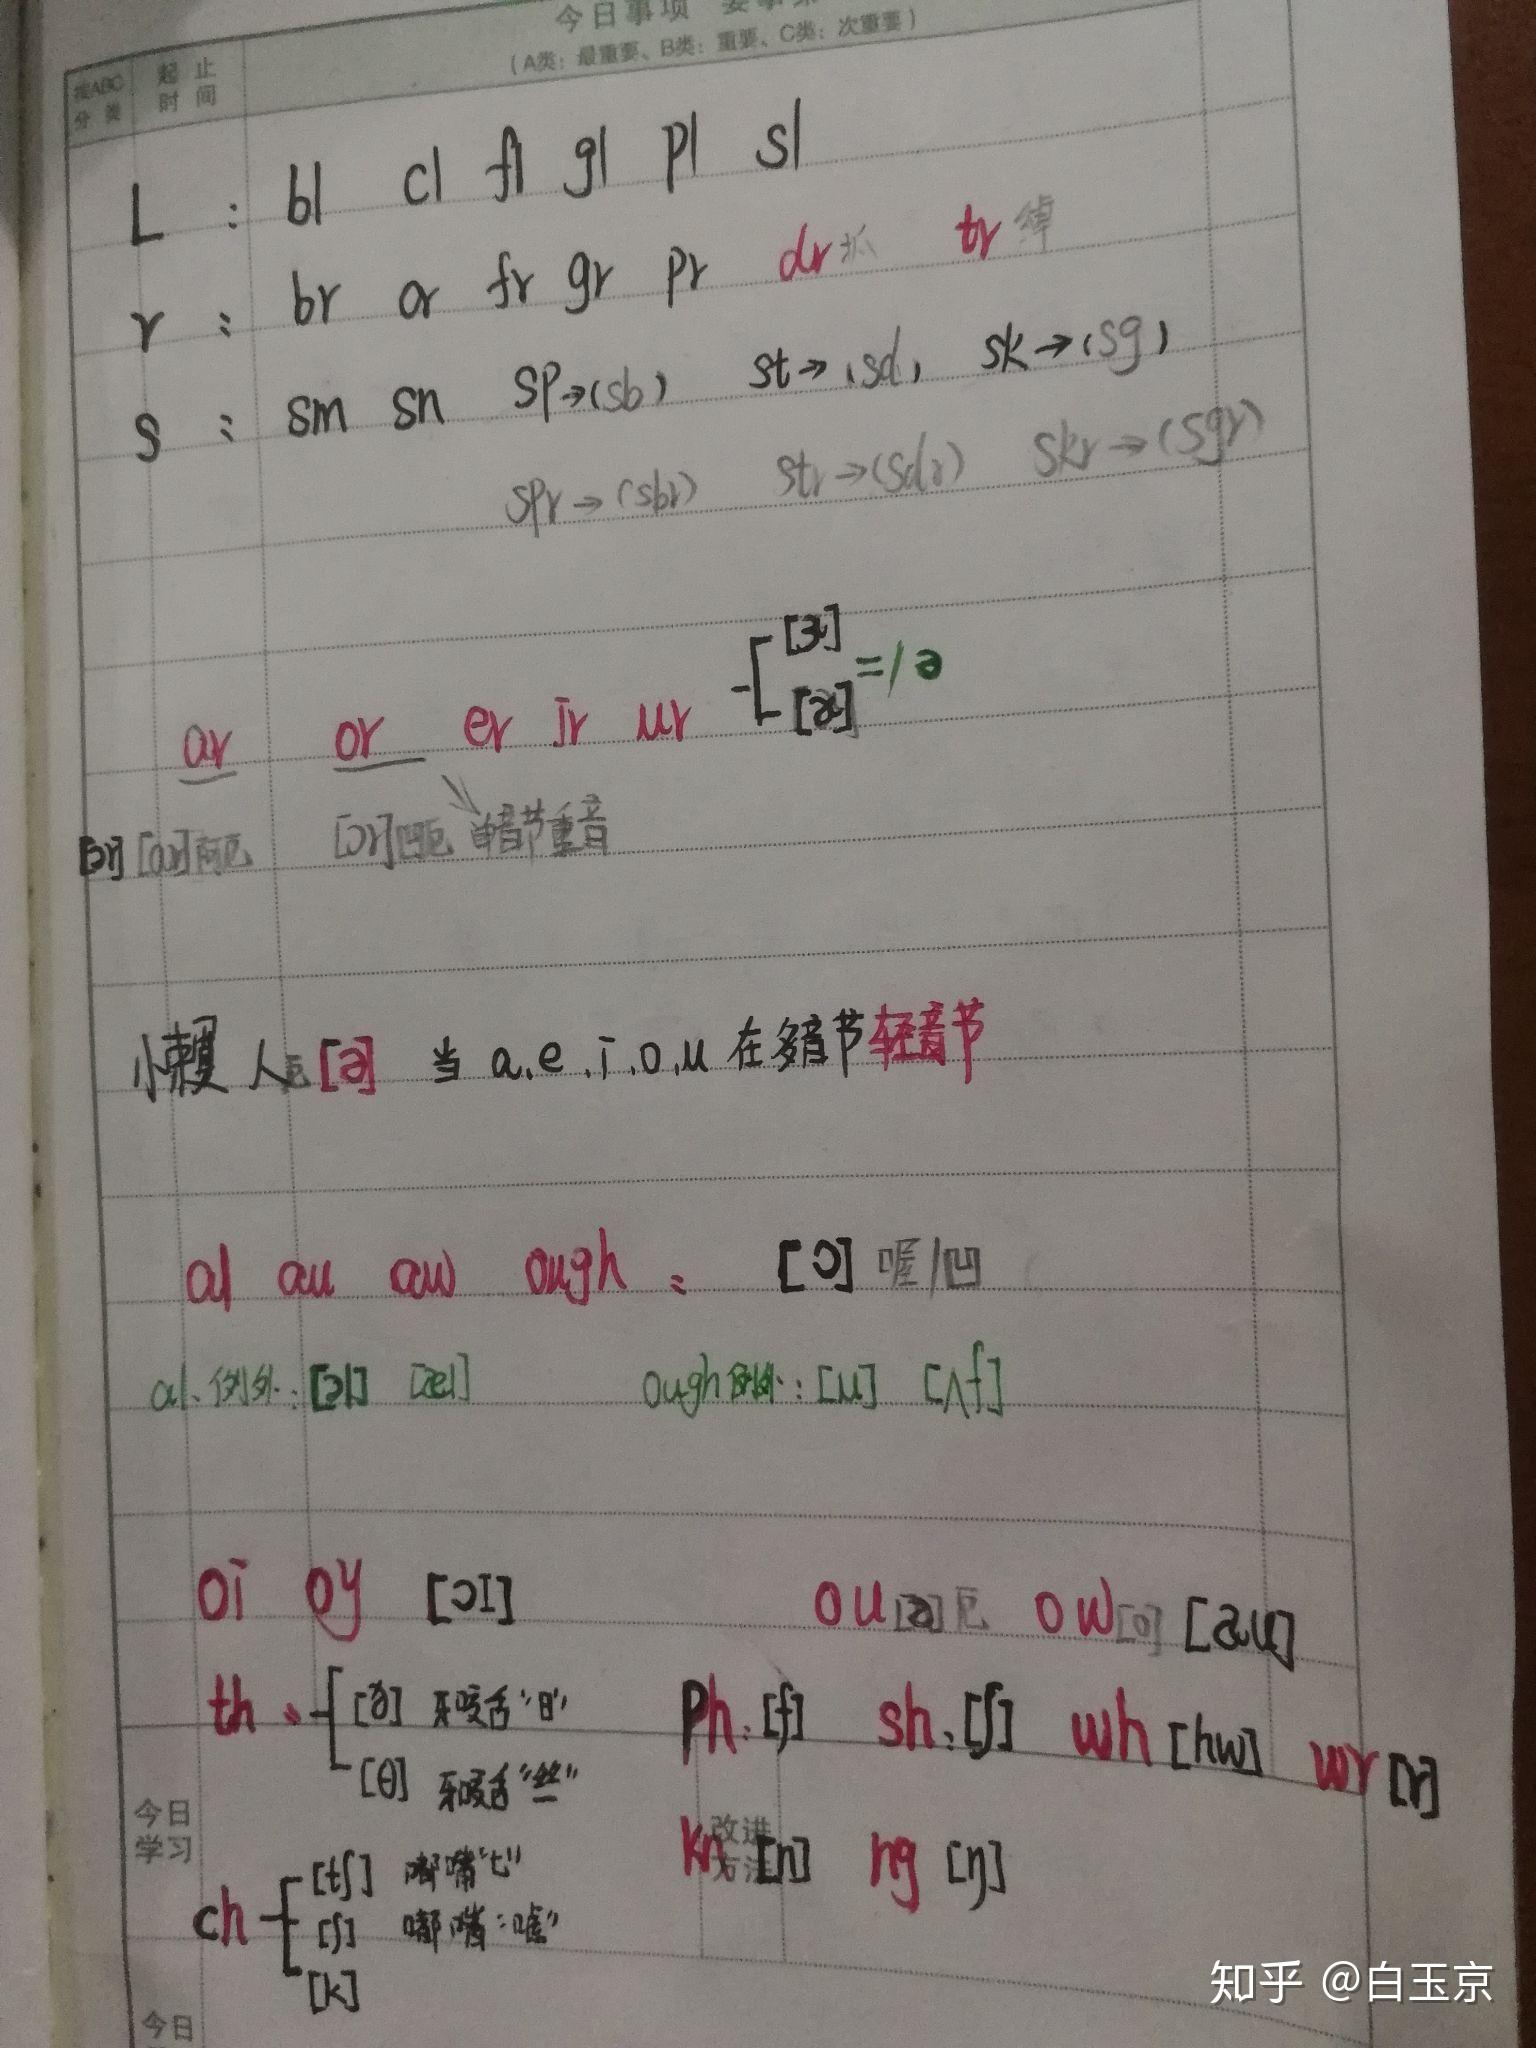 今日事项
(A类：最重要、B类：重要、C类：次重要)
按ABC分类 起止时间
L : bl cl fl gl pl sl
r : br cr fr gr pr dr抓 tr
s : sm sn sp→(sb) st→(sd) sk→(sg)
spr→(sbr) str→(sdr) skr→(sgr)
ar or er ir ur [ɝ] [ɚ] =/ə
[ɔr] [ɑr]啊厄 [ɔr]凹厄 单音节重音
小懒人厄[ə] 当a.e.i.o.u在多音节轻音节
al au aw ough : [ɔ] 喔/凹
al.例外:[əl] [æl] ough例外:[u] [ʌf]
oi oy [ɔI] ou[ə]厄 ow[o] [au]
th: [ð] 牙咬舌"日" ph:[f] sh:[ʃ] wh [hw] wr [r]
[θ] 牙咬舌"丝"
今日学习 改进方法
kn [n] ng [ŋ]
ch [tʃ] 嘟嘴"七"
[ʃ] 嘟嘴"嘘"
[k]
今日
知乎 @白玉京